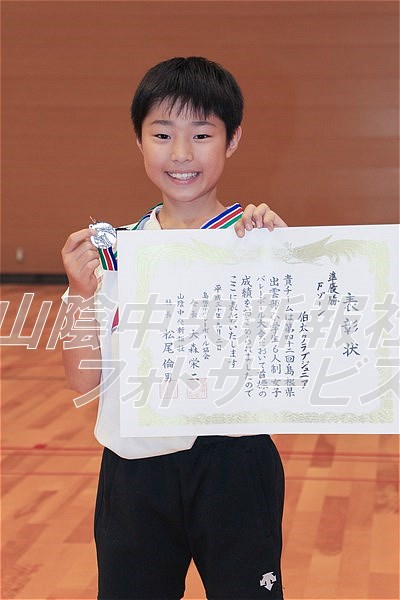 表彰状
準優勝
Fゾーン
伯太クラブジュニア
貴チームは第四十二回島根県
小学生6人制女子
バレーボール大会において頭書の
成績を収められましたので
ここに表彰いたします
平成
島根県バレーボール協会
会長 大森栄二
山陰中央新報社
松尾倫男
山陰中央新報社
フォトサービス